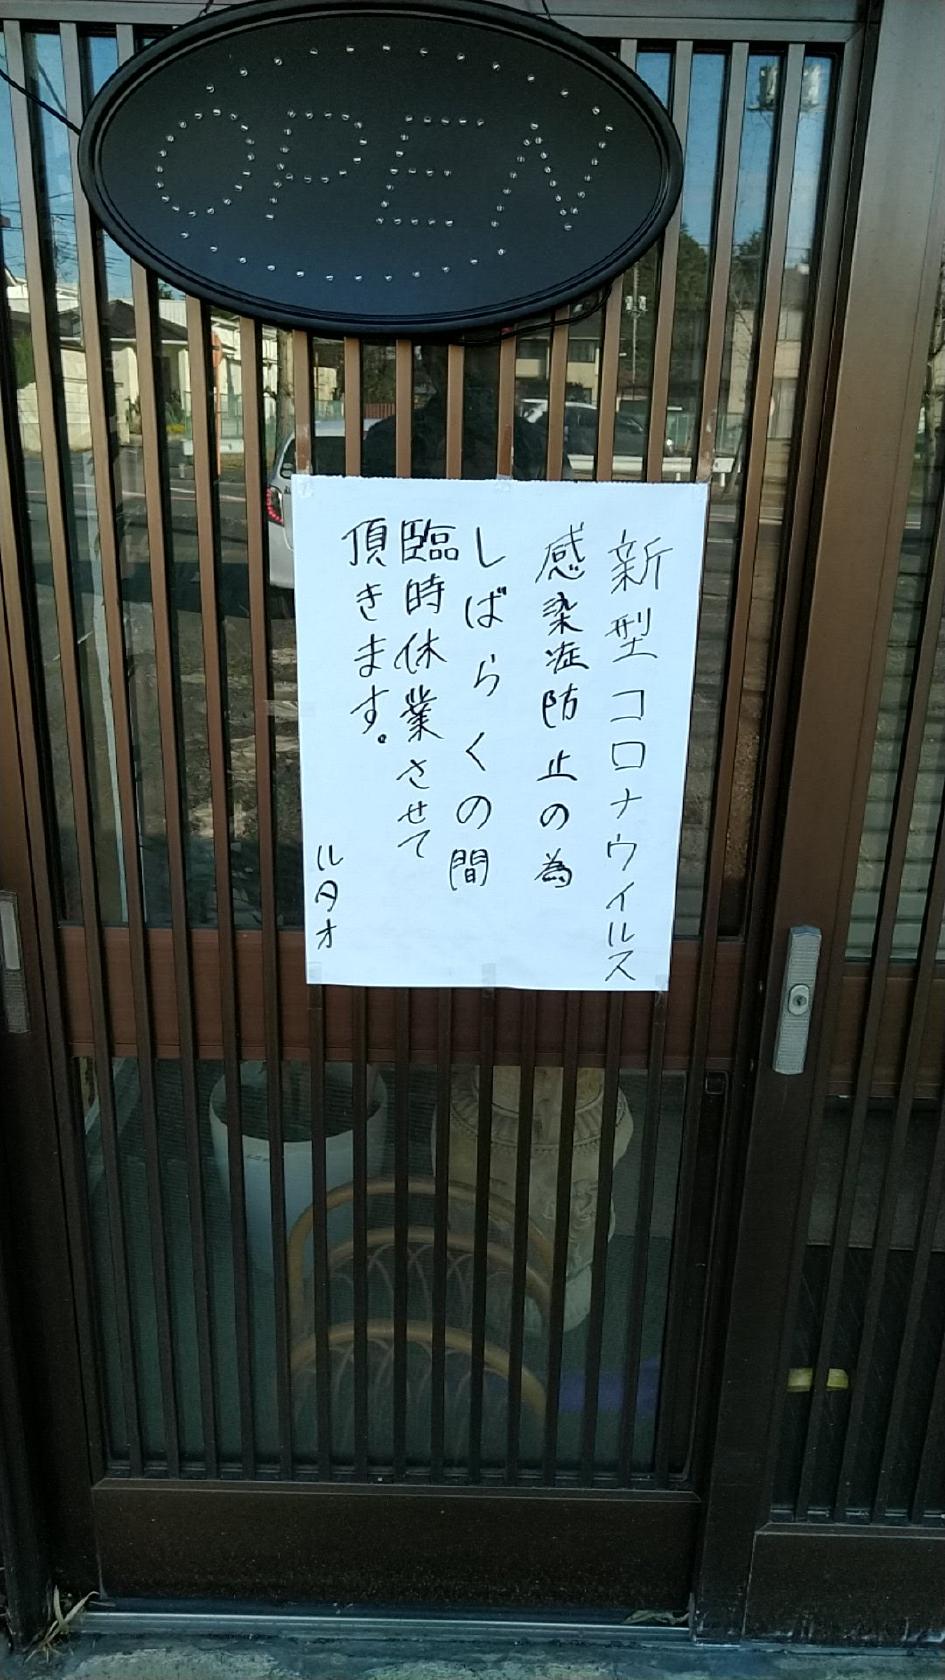 OPEN
新型コロナウイルス
感染症防止の為
しばらくの間
臨時休業させて
頂きます。
ルタオ